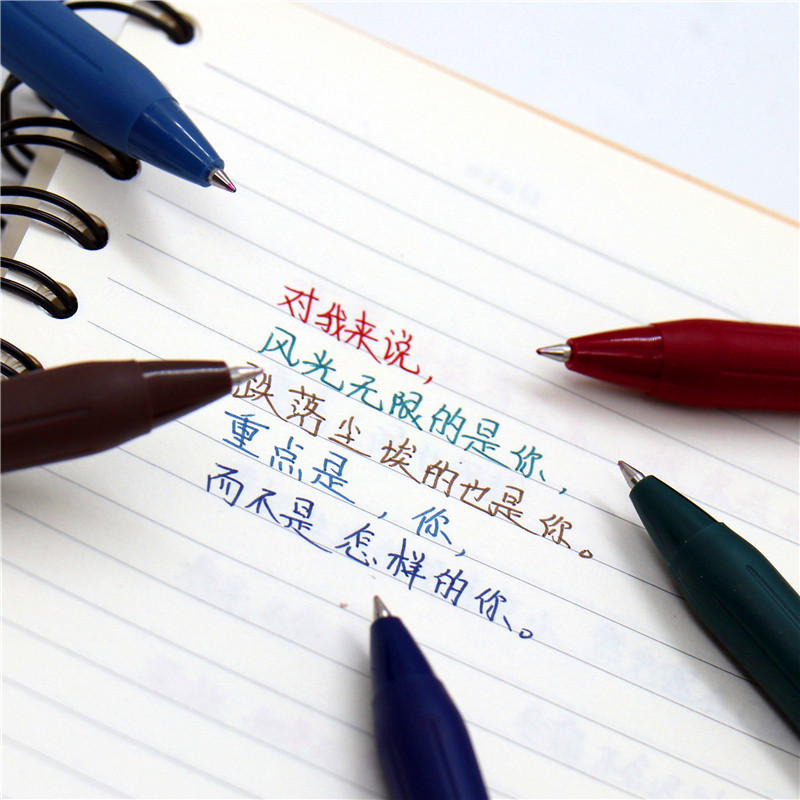 对我来说，
风光无限的是你，
跌落尘埃的也是你。
重点是，你，
而不是怎样的你。